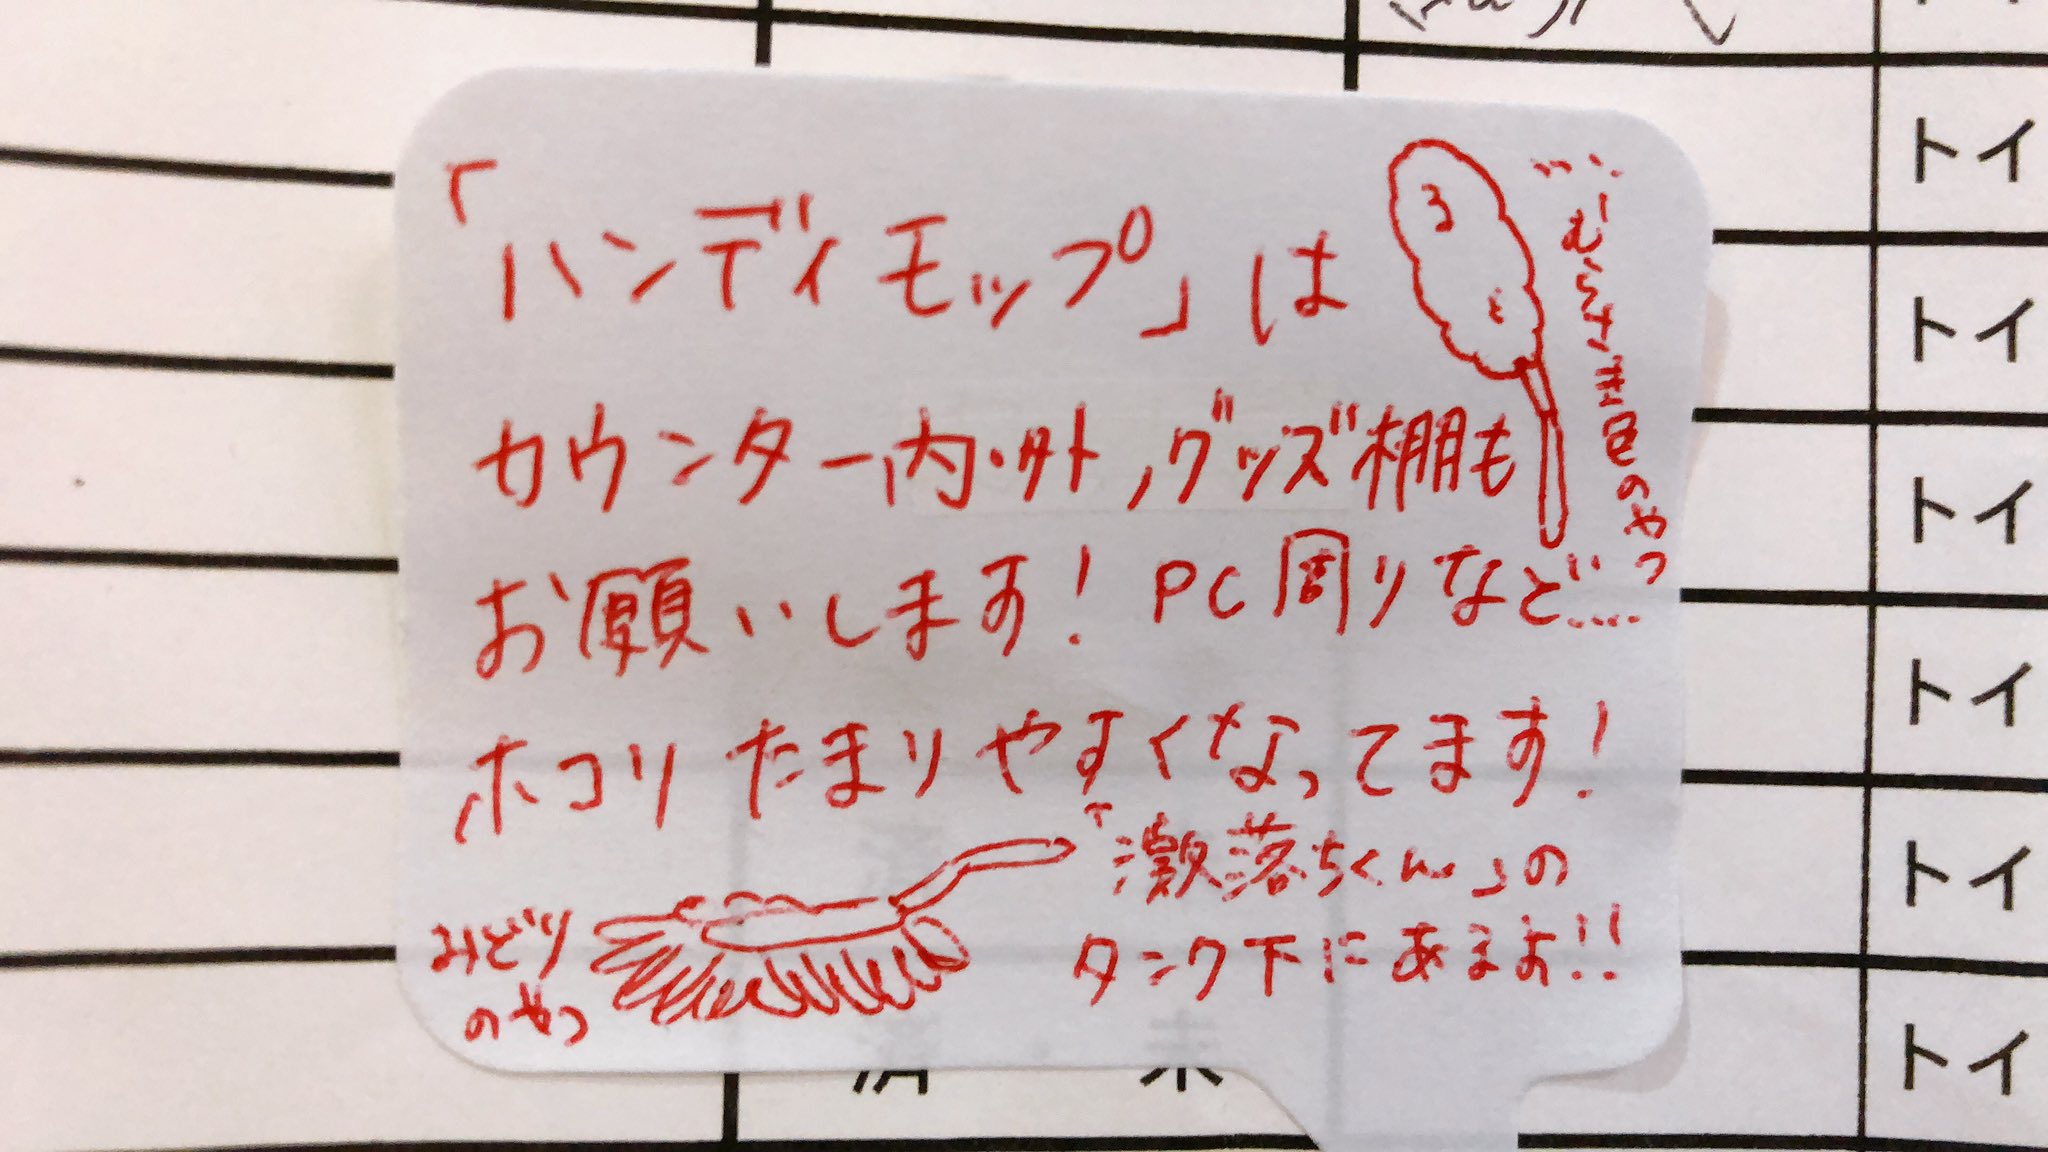 「ハンディモップ」は
むらさき色のやつ
カウンター内・外,グッズ棚も
お願いします！PC周りなど....
ホコリたまりやすくなってます！
みどり
のやつ
「激落ちくん」の
タンク下にあます!!
トイ
トイ
トイ
トイ
トイ
トイ